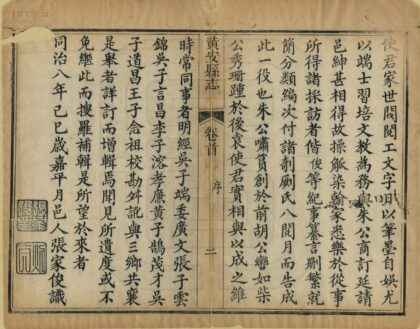 使君家世閥閱工文字日以筆墨自娛尤
以端士習培文教為務與朱公商訂延請
邑紳甚相得故操觚染翰家悉樂於從事
所得諸採訪者偕俊等紀事纂言刪繁就
簡分類編次付諸剞劂氏八閱月而告成
此一役也朱公嘯莫創於前胡公巒如柴
公秀珊踵於後袁使君實相與以成之維
黃安縣志
卷首
序
二
時常同事者明經吳子端委廣文張子雲
錦吳子言昌李子滂孝廉黃子鵠茂才吳
子道昌王子念祖校勘舛訛與三鄉共襄
是舉者詳訂而增輯焉聞見所遺度或不
免繼此而搜羅補輯是所望於來者
同治八年己巳歲嘉平月邑人張家俊識